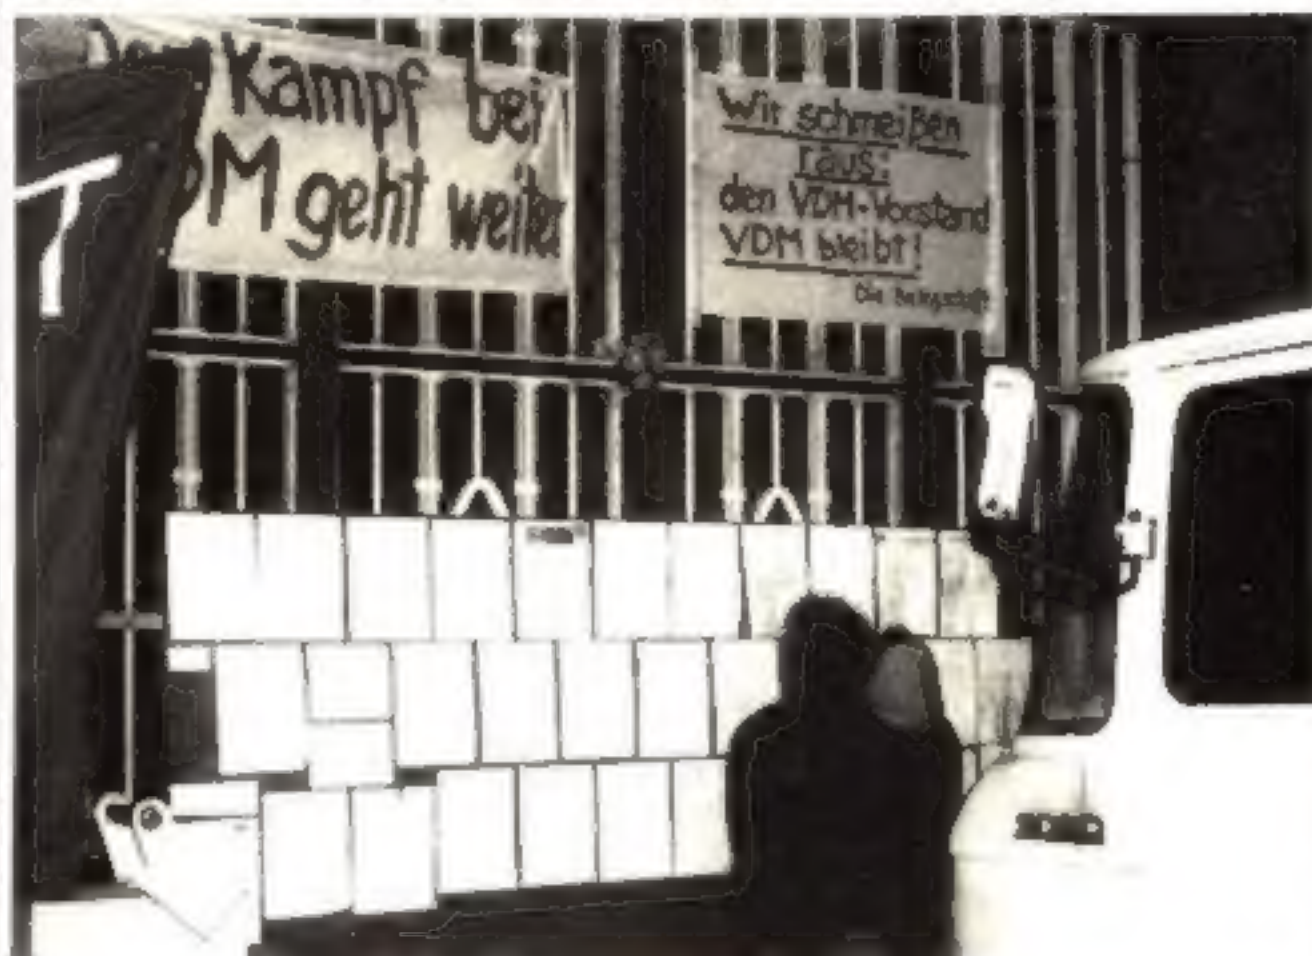 Kampf bei
M geht weiter
Wir schmeißen
raus:
den VDM-Vorstand
VDM bleibt!
Die Belegschaft